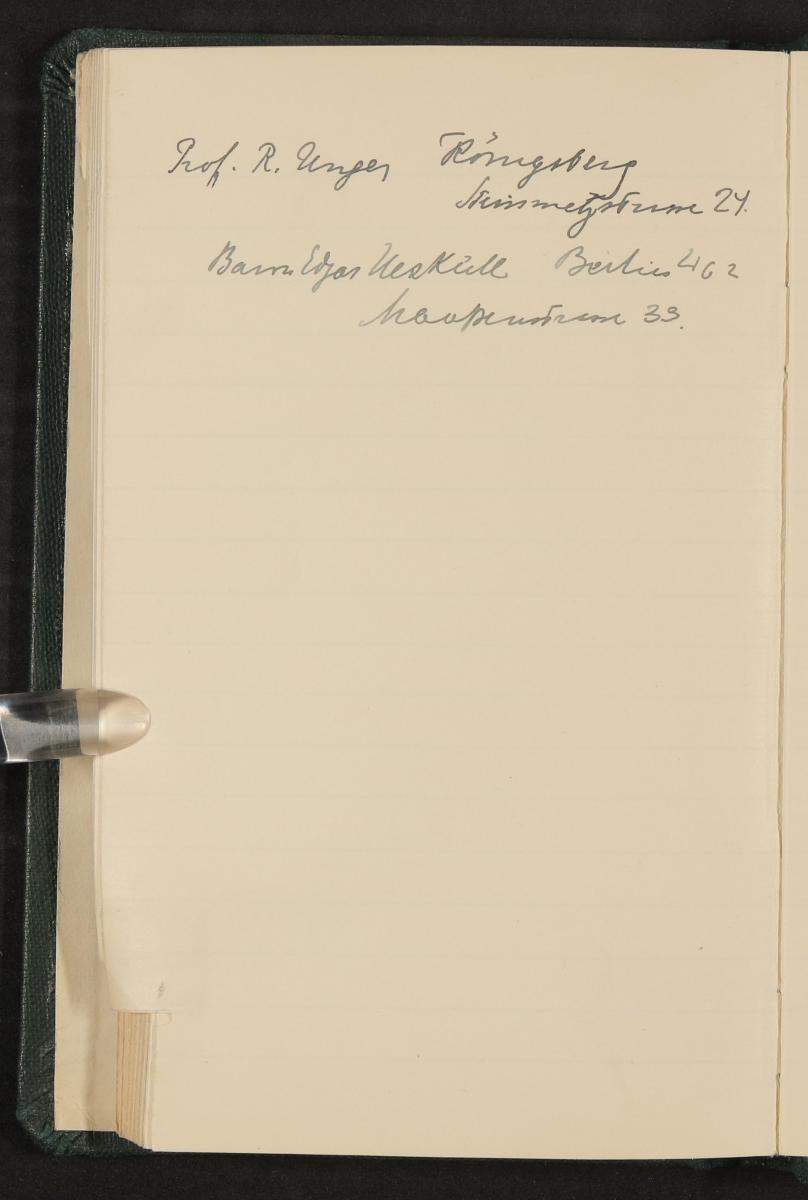 Prof. R. Unger Königsberg
Steinmetzstrasse 24.
Baron Edgar Uexküll Berlin W 62
Maaßenstrasse 33.